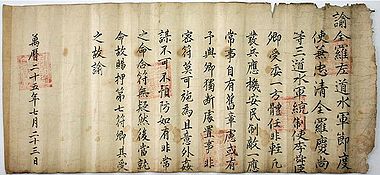 諭全羅左道水軍節度
使兼忠清全羅慶尚
等三道水軍統制使李舜臣
卿受委一方體任非輕凡
發兵應機安民制敵一應
常事自有舊章慮或有
予與卿獨斷處置事非
密符莫可施爲且意外姦
謀不可不預防如有非常
之命合符無疑然後當就
命故賜押第七符卿其受
之故諭
萬曆二十五年七月二十三日